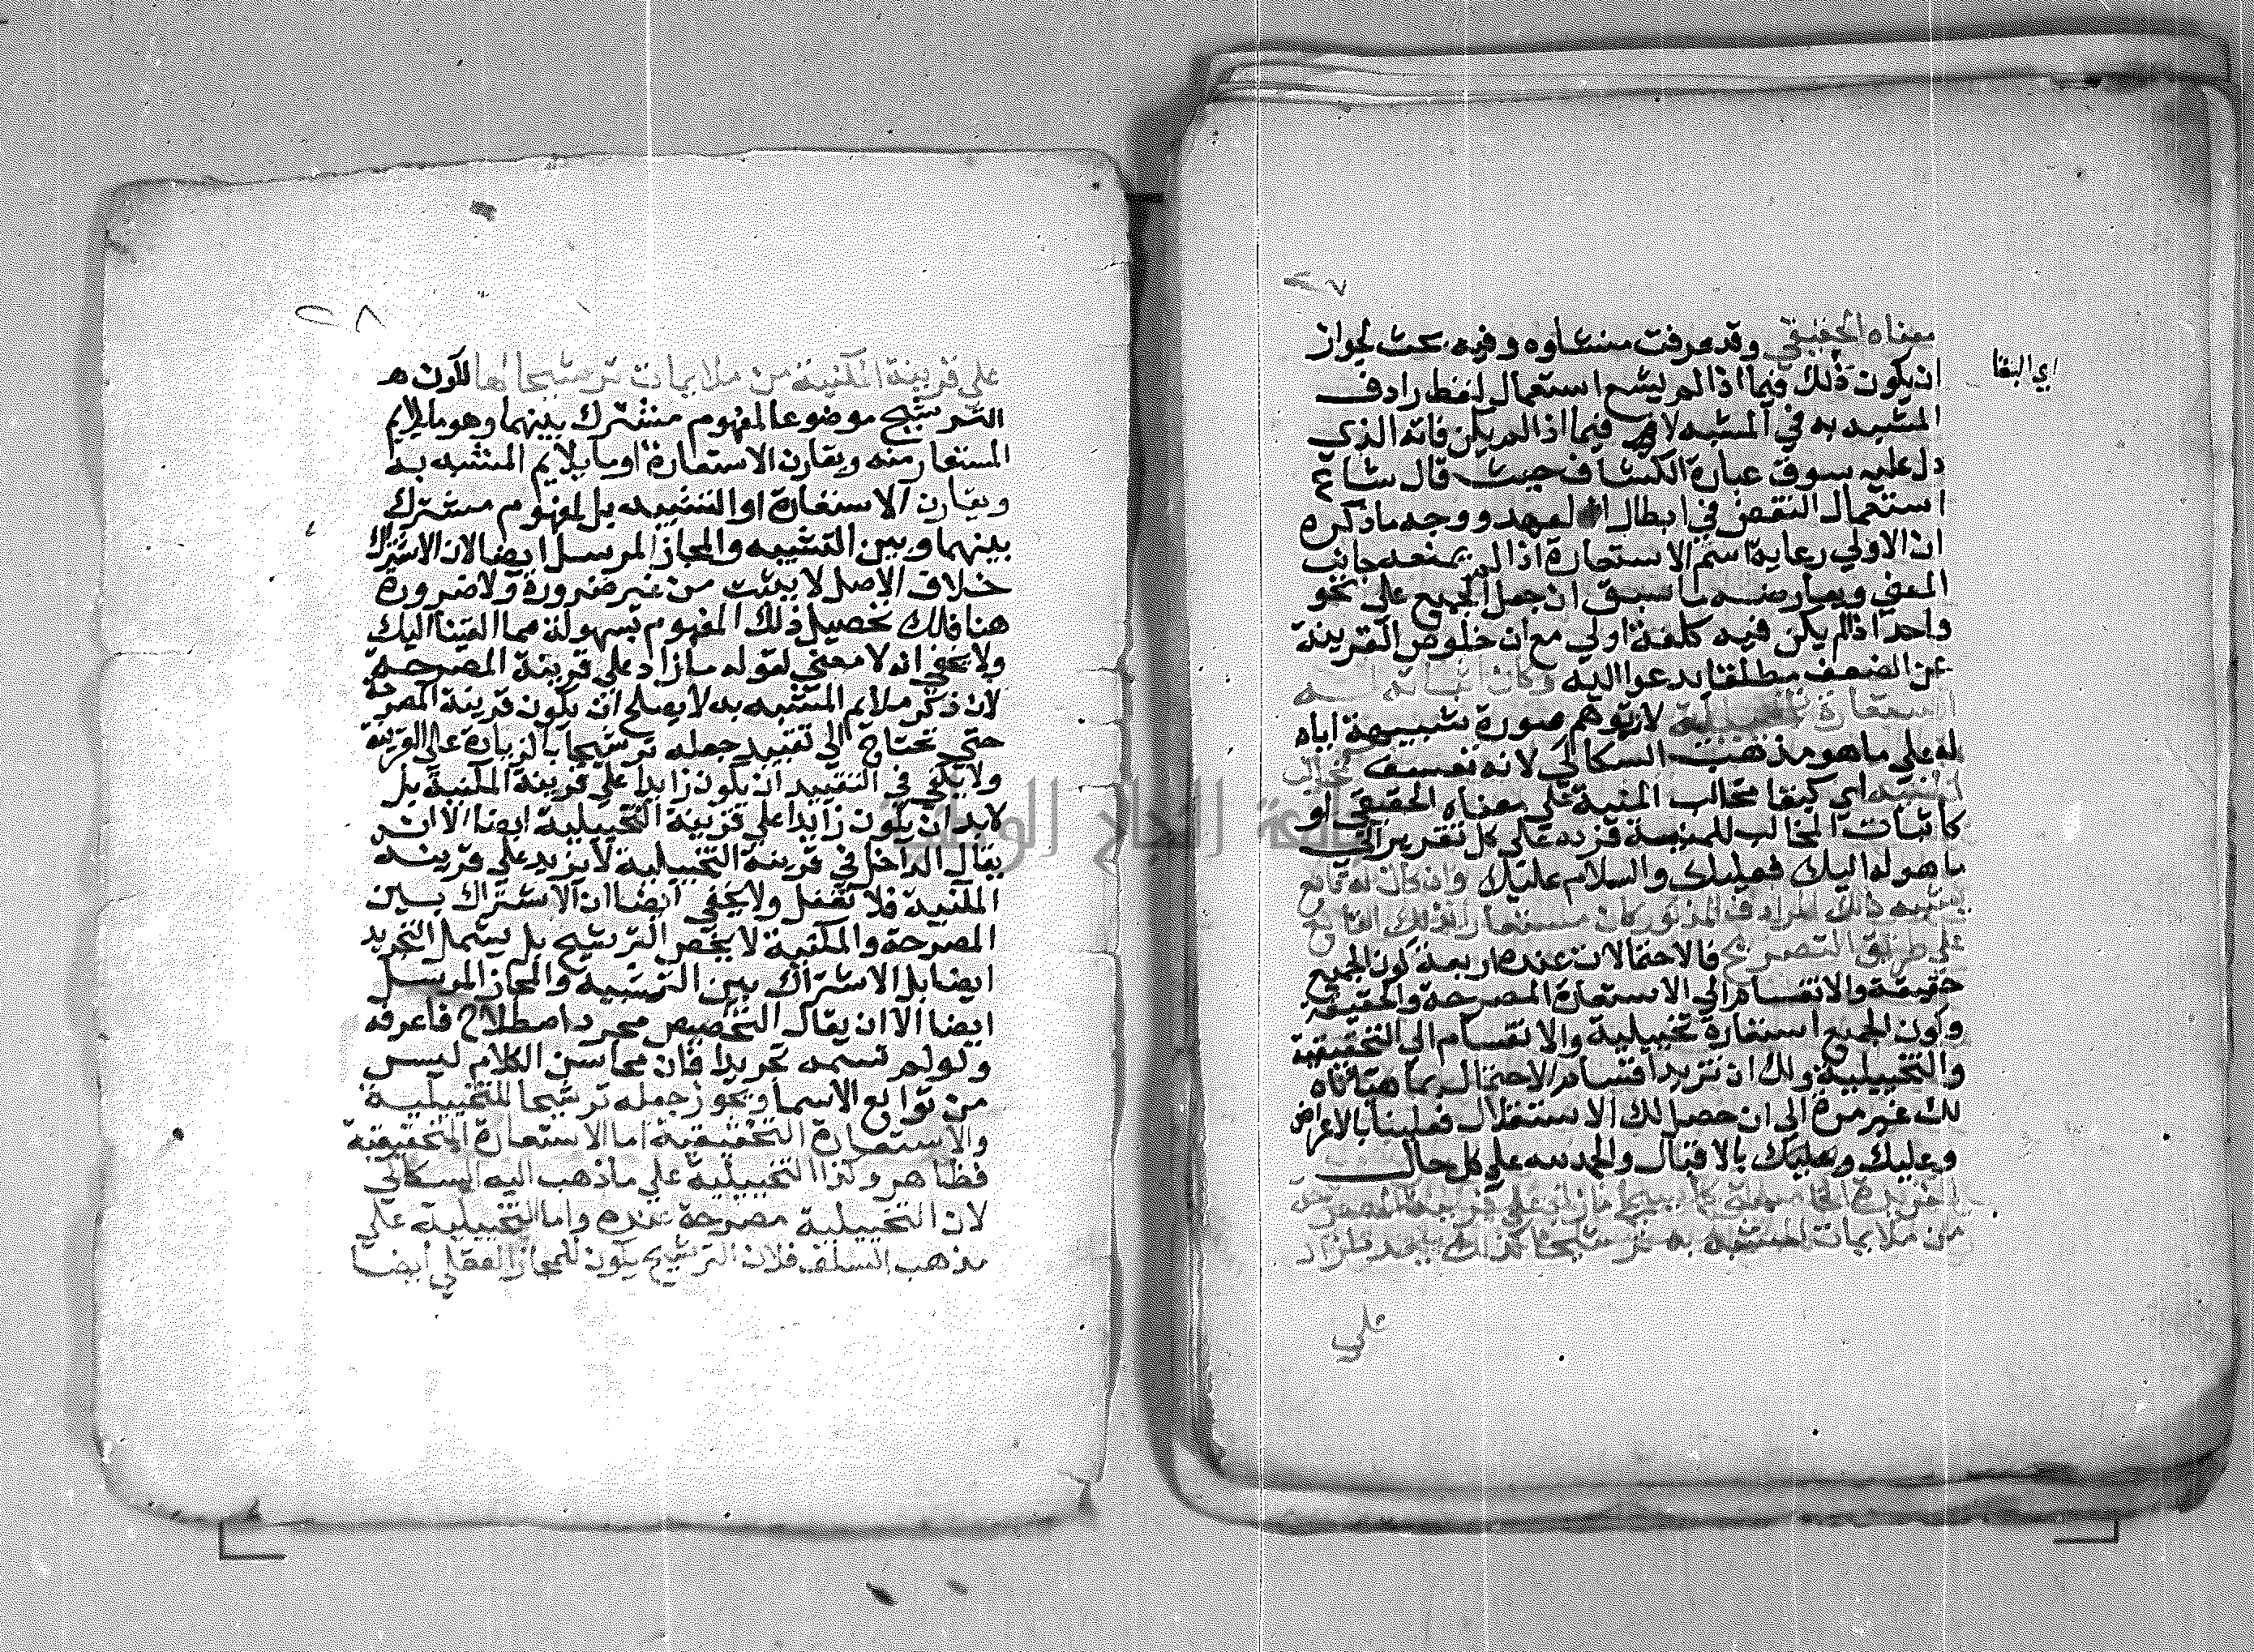 ٢٧
معناه الحقيقي وقد عرفت منشاوه وفيه بحث لجواز
اي البقا
ان يكون ذلك فيما اذا لم يشع استعمال لفظ رادف
المشبه به في المشبه لا فيما اذا لم يكن فانه الذي
دل عليه سوق عبارة الكشاف حيث قال شاع
استعمال النقض في ابطال العهد ووجه ما ذكره
ان الاولي رعاية اسم الاستعارة اذا لم يمنعه جانب
المعني ويعارضه ما سبق ان جعل الجميع علي نحو
واحد اذا لم يكن فيه كلفة اولي مع ان خلوص القرينة
عن الضعف مطلقا يدعوا اليه وكان اثباته له
استعارة تخييلية لا توهم صورة شبيهة اياه
له علي ما هو مذهب السكاكي لانه تعسف كمخالب
المنيه اي كبقا مخالب المنية علي معناه الحقيقي او
كاثبات المخالب للمنية فزده علي كل تقرير الي
ما هو له اليك فعليك والسلام عليك وان كان له تابع
يشبه ذلك المرادف المذكور كان مستعارا لذلك التابع
علي طريق التصريح فالاحتمالات عنده اربعة كون الجميع
حقيقة والانقسام الي الاستعارة المصرحة والحقيقة
وكون الجميع استعارة تخييلية والانقسام الي التحقيقية
والتخييلية ولك ان تزيد اقسام الاحتمال بما هيئناه
لك غير مرة الي ان حصل لك الاستقلال فعلينا بالاعراض
وعليك وعليك بالاقبال والحمد لله علي كل حال
الفريدة الخامسة كما يسمي ما زاد علي قرينة المصرحة
من ملايمات المشبه به ترشيحا كذلك يعد ما زاد
علي
٢٨
علي قرينة المكنية من ملايمات ترشيحا لها لكون
الترشيح موضوعا لمفهوم مشترك بينهما وهو ما يلايم
المستعار منه ويقارن الاستعارة او ما يلايم المشبه به
ويقارن الاستعارة او التشبيه بل لمفهوم مشترك
بينهما وبين التشبيه والمجاز المرسل ايضا لان الاشتراك
خلاف الاصل لا يثبت من غير ضرورة ولا ضرورة
هنا فلك تحصيل ذلك المفهوم بسهولة مما القينا اليك
ولا يخفي انه لا معني لقوله ما زاد علي قرينة المصرحة
لان ذكر ملايم المشبه به لا يصلح ان يكون قرينة المصرحة
حتي يحتاج الي تقييد جعله ترشيحا بالزيادة علي القرينة
ولا يكفي في التقييد ان يكون زايدا علي قرينة المكنية بل
لا بد ان يكون زايدا علي قرينة التخييلية ايضا الا ان
يقال الداخل في قرينة التخييلية لا يزيد علي قرينة
المكنية فلا تغفل ولا يخفي ايضا ان الاشتراك بين
المصرحة والمكنية لا يخص الترشيح بل يشمل التجريد
ايضا بل الاشتراك بين التشبيه والمجاز المرسل
ايضا الا ان يقال التخصيص مجرد اصطلاح فاعرفه
ولو لم تسمه تجريدا فان محاسن الكلام ليس
من توابع الاسما ويجوز جعله ترشيحا للتخييلية
والاستعارة التحقيقية اما الاستعارة التحقيقية
فظاهر وكذا التخييلية علي ما ذهب اليه السكاكي
لان التخييلية مصرحة عنده واما التخييلية علي
مذهب السلف فلان الترشيح يكون للمجاز العقلي ايضا
جامعة النجاح الوطنية